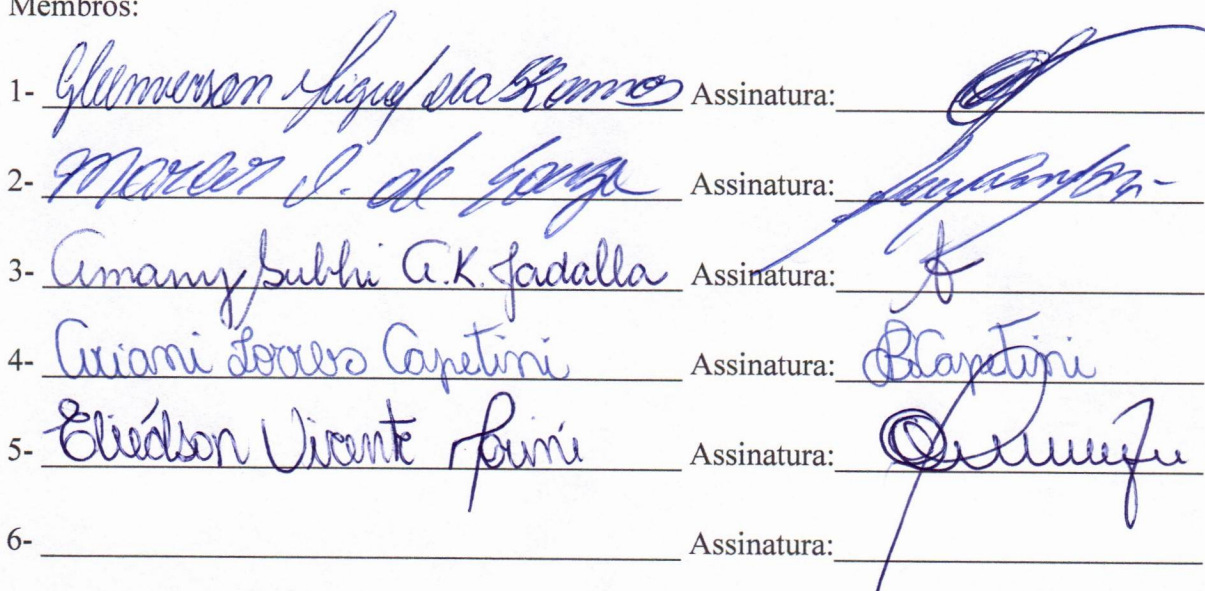 Membros:
1- Gleenverson Miguel da Ramos Assinatura:
2- Marcos J. de Souza Assinatura:
3- Amany Subhi A.K. Jadalla Assinatura:
4- Ariani Torres Capetini Assinatura: Capetini
5- Eliédson Vicente Morini Assinatura:
6- Assinatura: